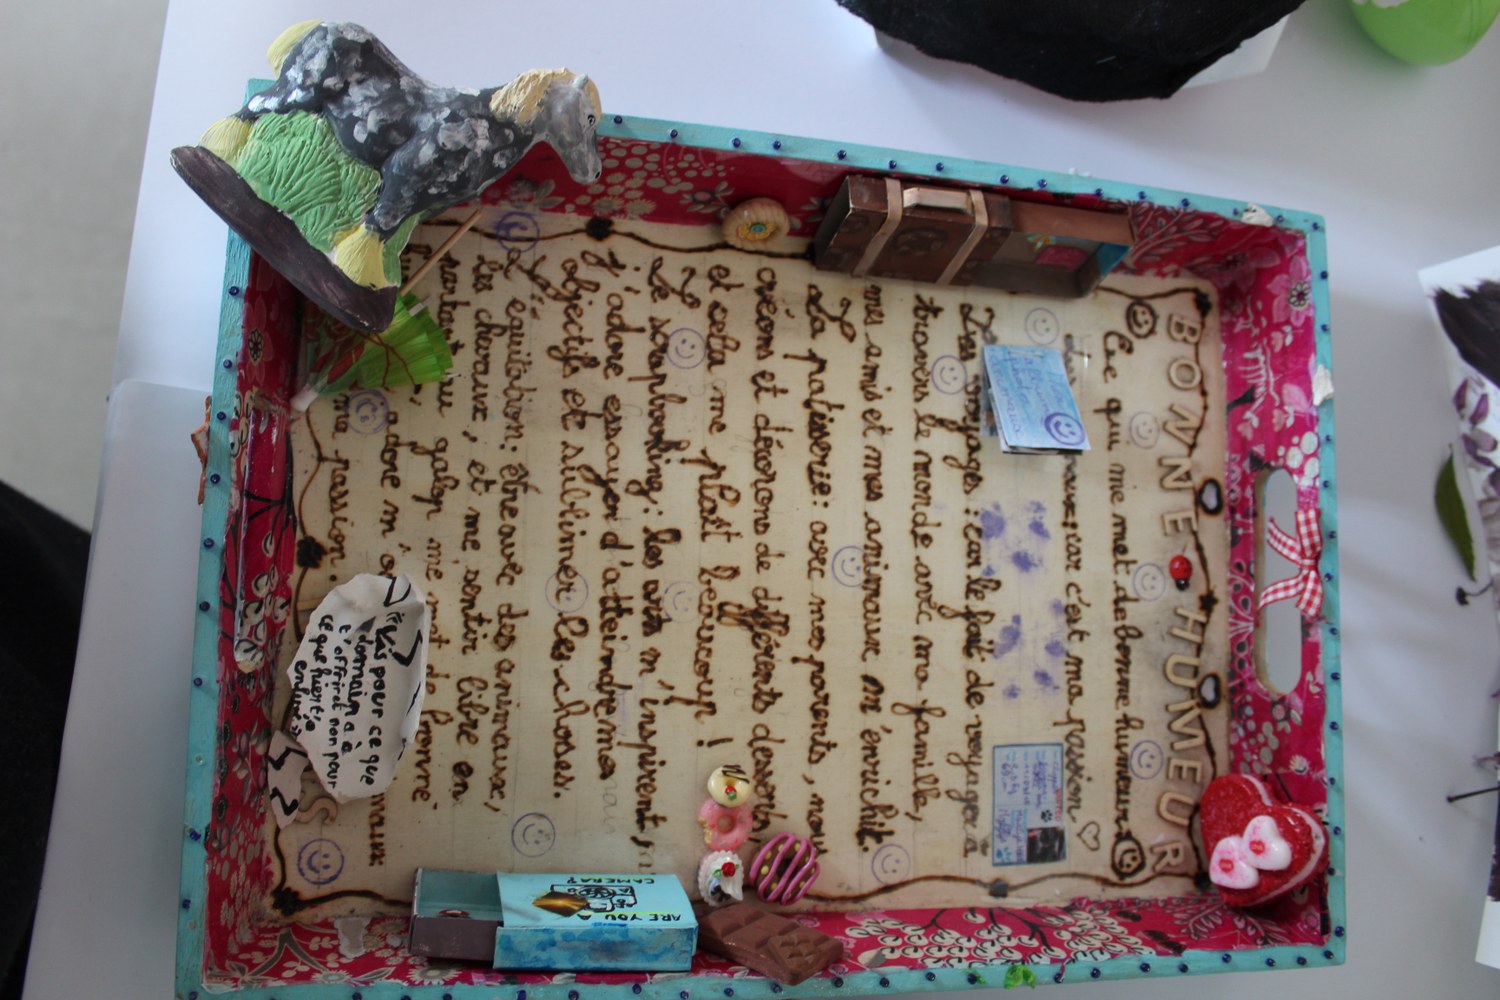 BONNE HUMEUR
Ce qui me met de bonne humeur
car c'est ma passion
Les voyages : car le fait de voyager à
travers le monde avec ma famille,
mes amis et mes animaux m'enrichit.
La patisserie : avec mes parents, nous
créons et décorons de différents desserts,
et cela me plaît beaucoup !
Le scrapbooking : les arts m'inspirent,
j'adore essayer d'atteindre mes
objectifs et sublimer les choses.
L'équitation : être avec des animaux,
les chevaux, et me sentir libre en
partant au galop me met de bonne
adore
ma passion.
"Vis pour ce que
demain a à
t'offrir et non pour
ce que hier t'a
enlevé"
ARE YOU A
CAMERA?